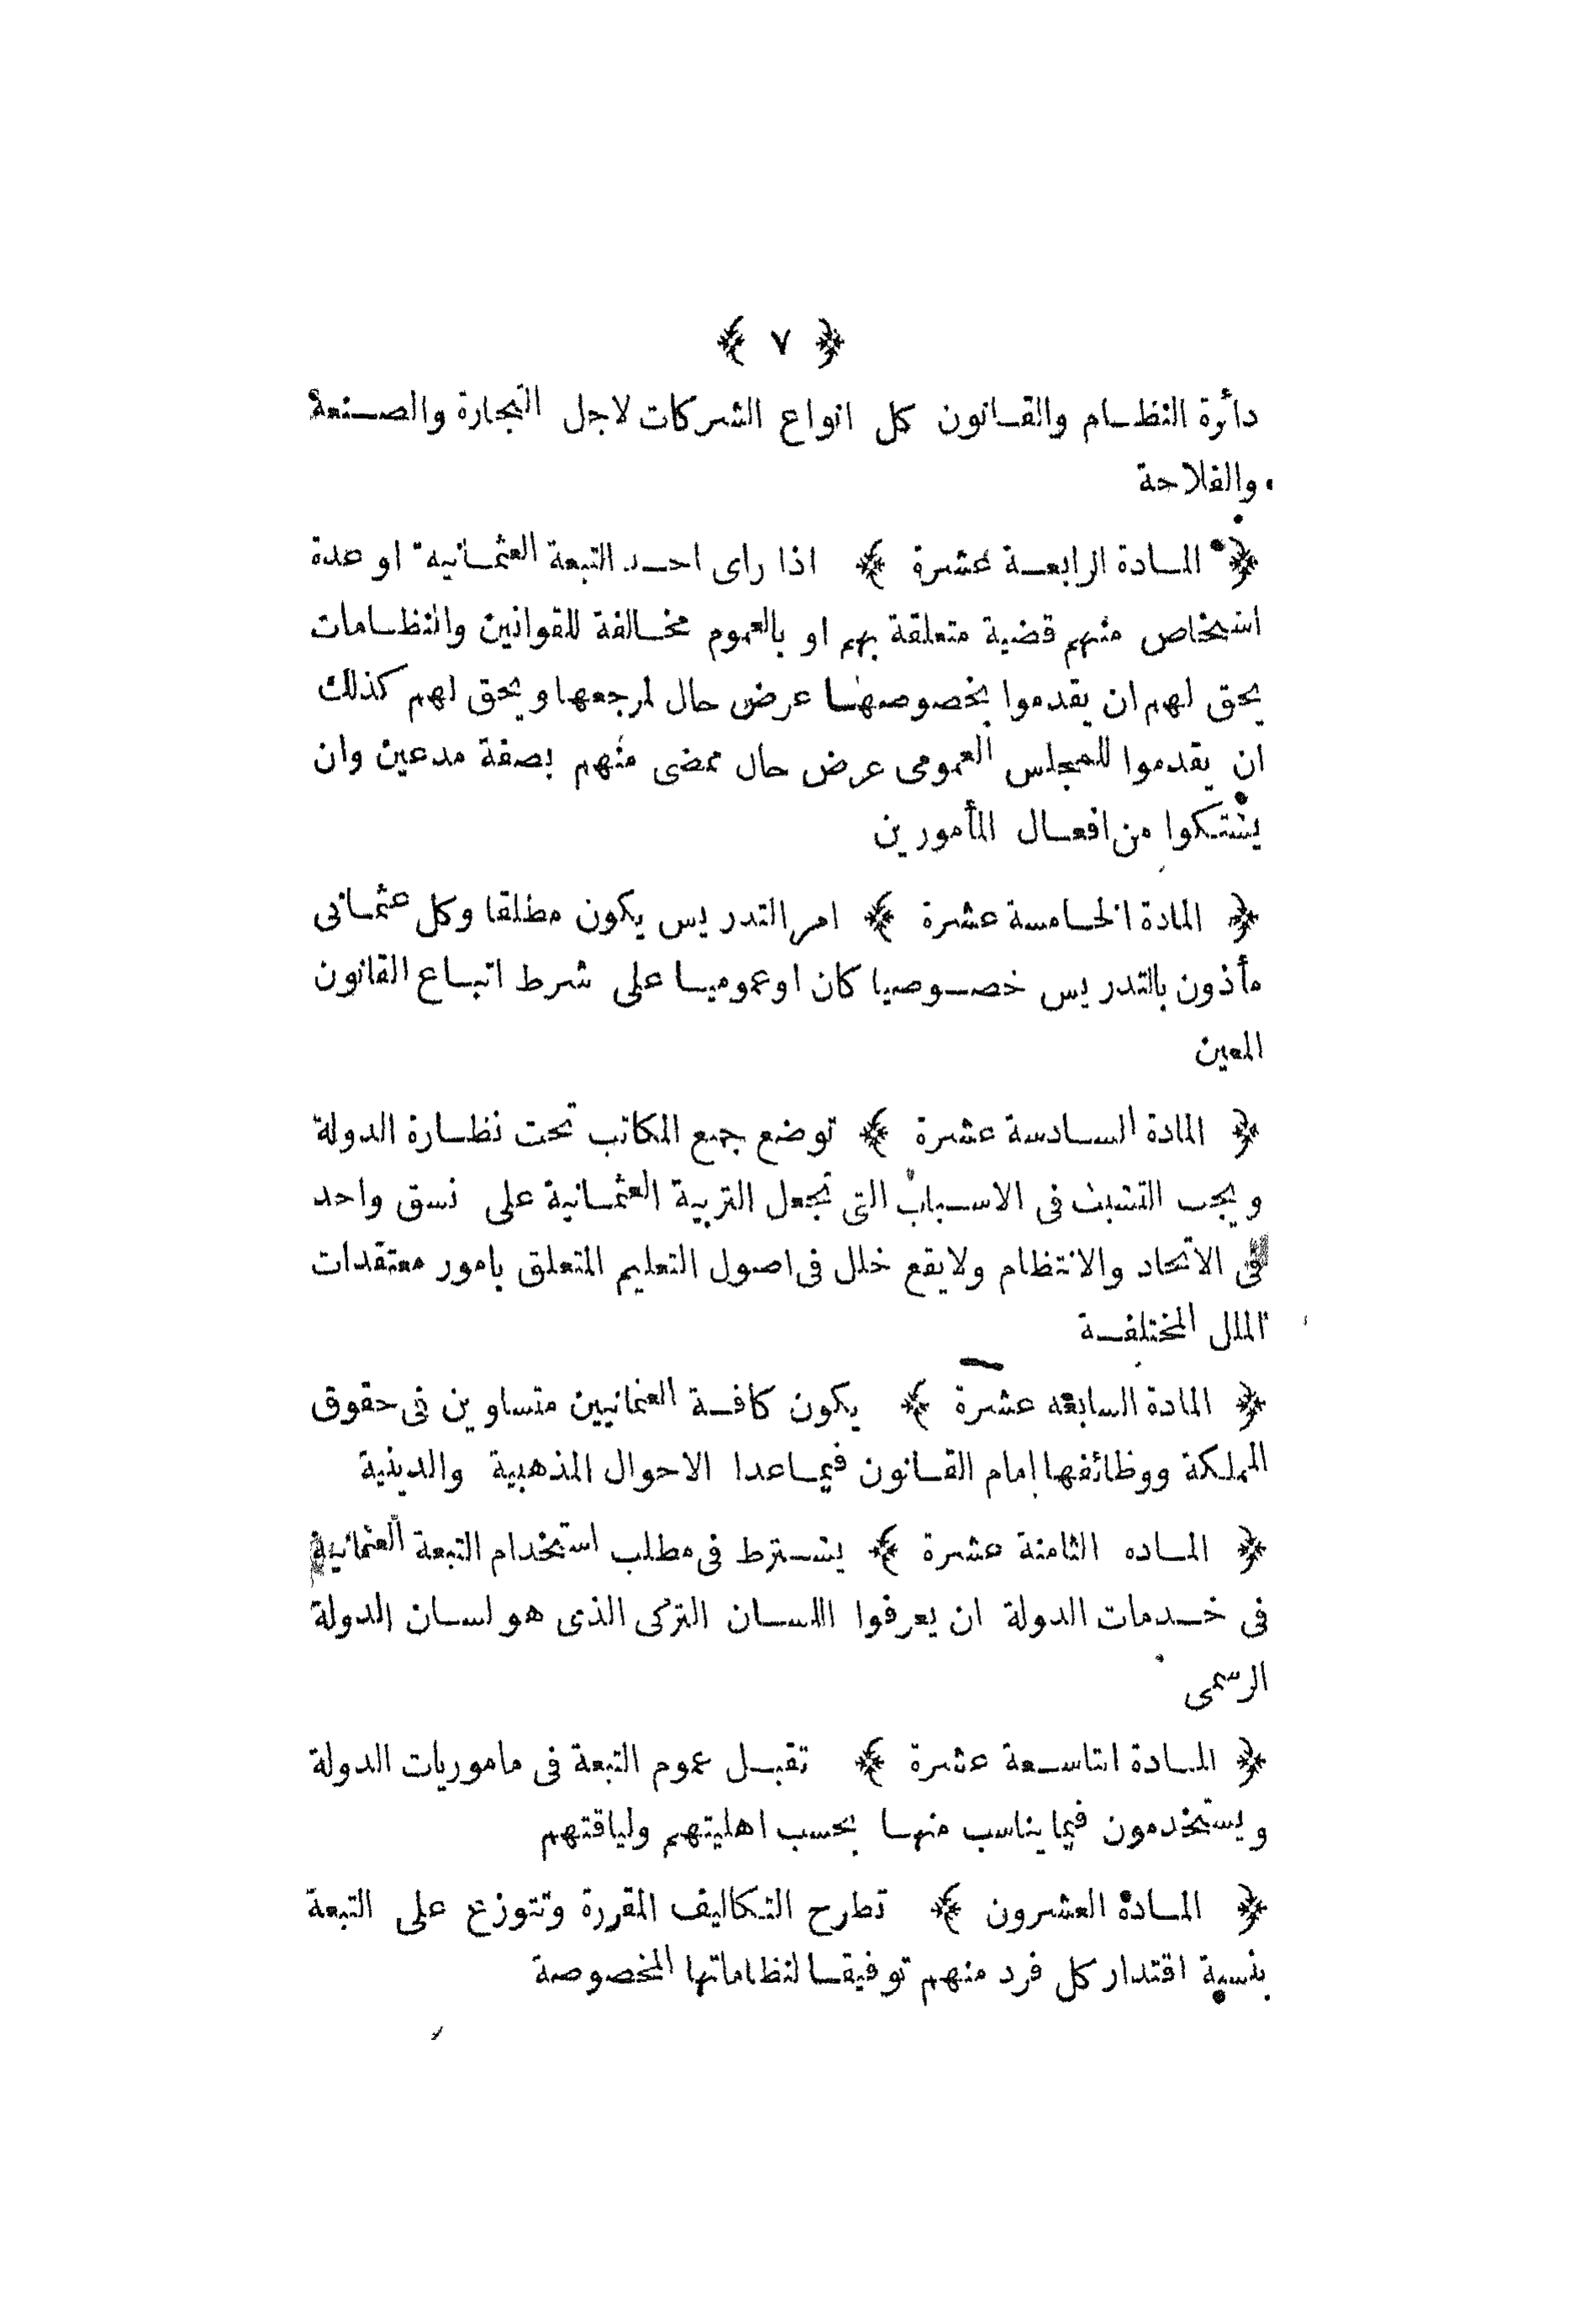 ﴿ ٧ ﴾
دائرة النظام والقانون كل انواع الشركات لاجل التجارة والصنعة
والفلاحة
﴿ المادة الرابعة عشرة ﴾ اذا راى احد التبعة العثمانية او عدة
اشخاص منهم قضية متعلقة بهم او بالعموم مخالفة للقوانين والنظامات
يحق لهم ان يقدموا بخصوصها عرض حال لمرجعها ويحق لهم كذلك
ان يقدموا للمجلس العمومى عرض حال ممضى منهم بصفة مدعين وان
يشتكوا من افعال المأمورين
﴿ المادة الخامسة عشرة ﴾ امر التدريس يكون مطلقا وكل عثمانى
مأذون بالتدريس خصوصيا كان او عموميا على شرط اتباع القانون
المعين
﴿ المادة السادسة عشرة ﴾ توضع جميع المكاتب تحت نظارة الدولة
ويجب التشبث فى الاسباب التى تجعل التربية العثمانية على نسق واحد
فى الاتحاد والانتظام ولا يقع خلل فى اصول التعليم المتعلق بامور معتقدات
الملل المختلفة
﴿ المادة السابعه عشرة ﴾ يكون كافة العثمانيين متساوين فى حقوق
المملكة ووظائفها امام القانون فيما عدا الاحوال المذهبية والدينية
﴿ الماده الثامنة عشرة ﴾ يشترط فى مطلب استخدام التبعة العثمانية
فى خدمات الدولة ان يعرفوا اللسان التركى الذى هو لسان الدولة
الرسمى
﴿ المادة التاسعة عشرة ﴾ تقبل عموم التبعة فى ماموريات الدولة
ويستخدمون فيما يناسب منها بحسب اهليتهم ولياقتهم
﴿ المادة العشرون ﴾ تطرح التكاليف المقررة وتتوزع على التبعة
بنسبة اقتدار كل فرد منهم توفيقا لنظاماتها المخصوصة